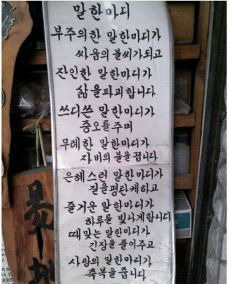 말한마디
부주의한 말한마디가
싸움의 불씨가되고
잔인한 말한마디가
삶을파괴합니다
쓰디쓴 말한마디가
증오를주며
무례한 말한마디가
자비의 불을 끕니다
은혜스런 말한마디가
길을평탄케하고
즐거운 말한마디가
하루를 빛나게합니다
때맞는 말한마디가
긴장을 풀어주고
사랑의 말한마디가
축복을 줍니다